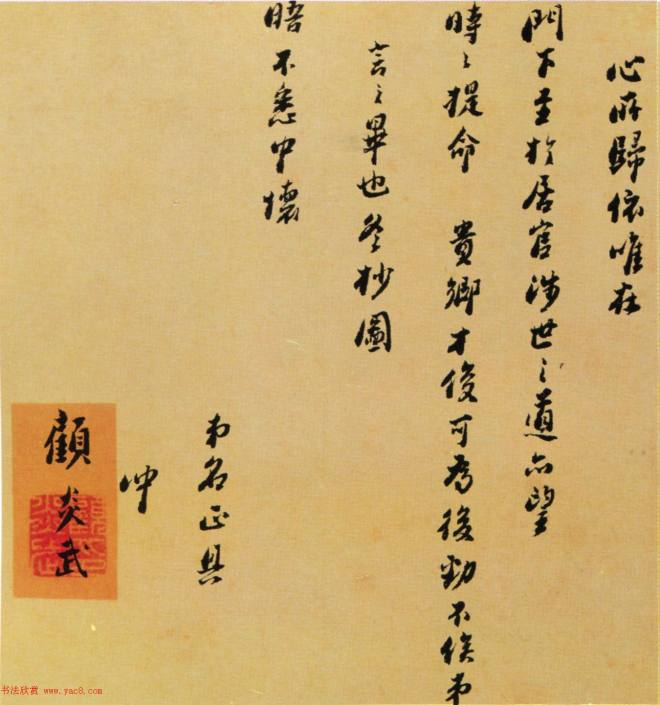 心所歸依唯在
門下至於居官涉世之道亦望
時々提命 貴鄉才俊可為後勁不俟弟
言之畢也冬抄圖
晤不悉中懷
弟名正具
冲
顧炎武
书法欣赏 www.yac8.com